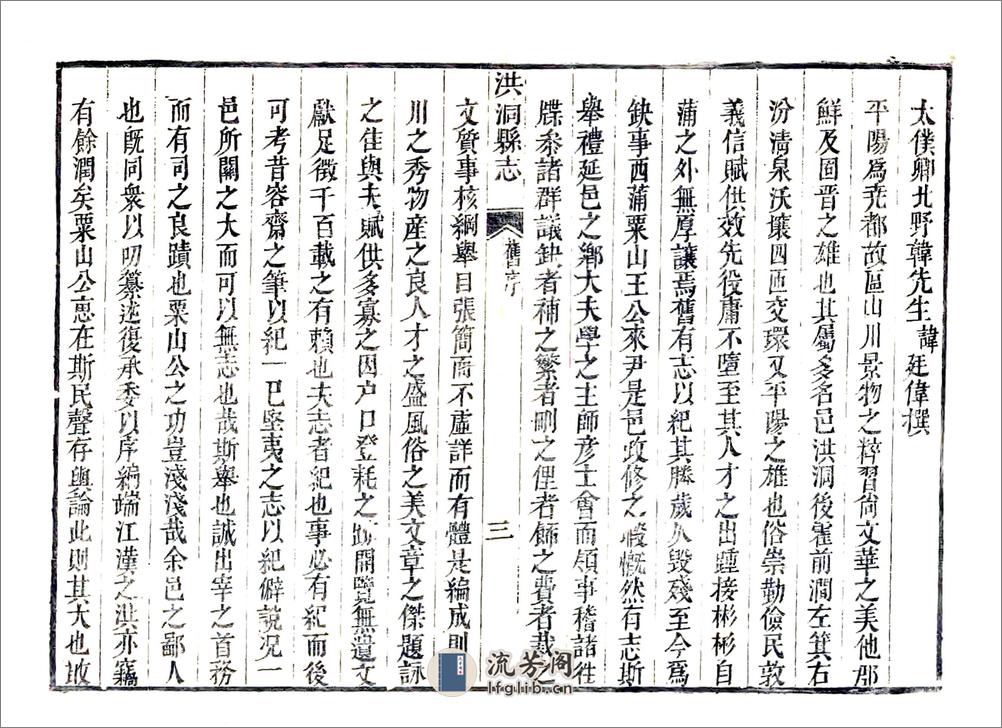 太僕卿北野韓先生諱廷偉撰
平陽爲堯都故區山川景物之粹習尙文華之美他郡
鮮及固晋之雄也其屬多名邑洪洞後霍前澗左箕右
汾清泉沃壤四匝交環又平陽之雄也俗崇勤儉民敦
義信賦供效先役庸不墮至其人才之出踵接彬彬自
蒲之外無厚讓焉舊有志以紀其勝歲久毀殘至今爲
缺事西蒲栗山王公來尹是邑政修之暇慨然有志斯
舉禮延邑之鄉大夫學之主師彦士會而領事稽諸徃
牒叅諸群議缺者補之繁者刪之俚者飾之費者裁之
洪洞縣志
舊序
三
文質事核綱舉目張簡而不虛詳而有體是編成則山
川之秀物產之良人才之盛風俗之美文章之傑題詠
之佳與夫賦供多寡之因户口登耗之跡開覽無遺文
獻足徵千百載之有賴也夫志者紀也事必有紀而後
可考昔容齋之筆以紀一巳堅夷之志以紀僻說况一
邑所關之大而可以無志也哉斯舉也誠出宰之首務
而有司之良蹟也栗山公之功豈淺淺哉余邑之鄙人
也旣同衆以叨纂述復承委以序編端江漢之洪亦竊
有餘潤矣栗山公惠在斯民聲存輿論此則其大也故
流芳閣
lfglib.cn